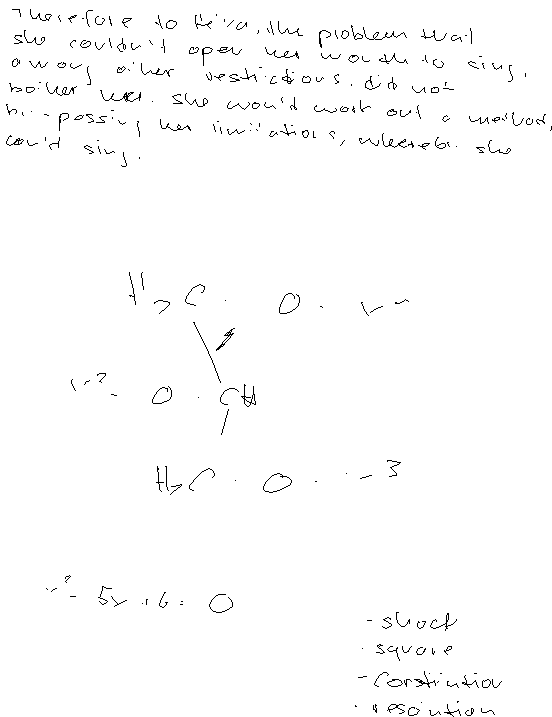 Therefore to Hiva, the problem that
she couldn't open her mouth to sing,
among other restrictions, did not
bother her. She would work out a method,
by-passing her limitations, whereby she
could sing.
H2C - O -
- O - CH
H2C - O - - 3
2 - 5x + 6 = 0
- shock
- square
- Constitution
- resolution